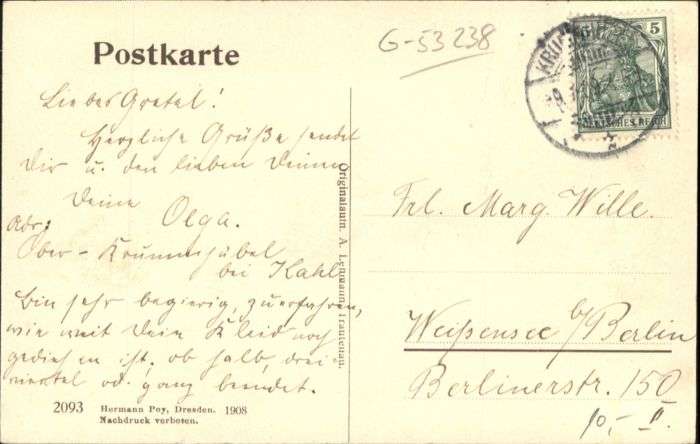 Postkarte
G-53238
5
DEUTSCHES REICH
Liebes Gretel!
Herzliche Grüße sendet
Dir u. den lieben Deinen
Deine Olga.
Adr:
Ober-Krummhübel
bei Kahl
bin sehr begierig, zu erfahren,
wie weit Dein Kleid noch
gediehen ist, ob halb, drei-
viertel od. ganz beendet.
2093 Hermann Poy, Dresden. 1908
Nachdruck verboten.
Originalaufn. A. Trautenau.
Frl. Marg. Wille.
Weißensee b/Berlin
Berlinerstr. 150
10,- II